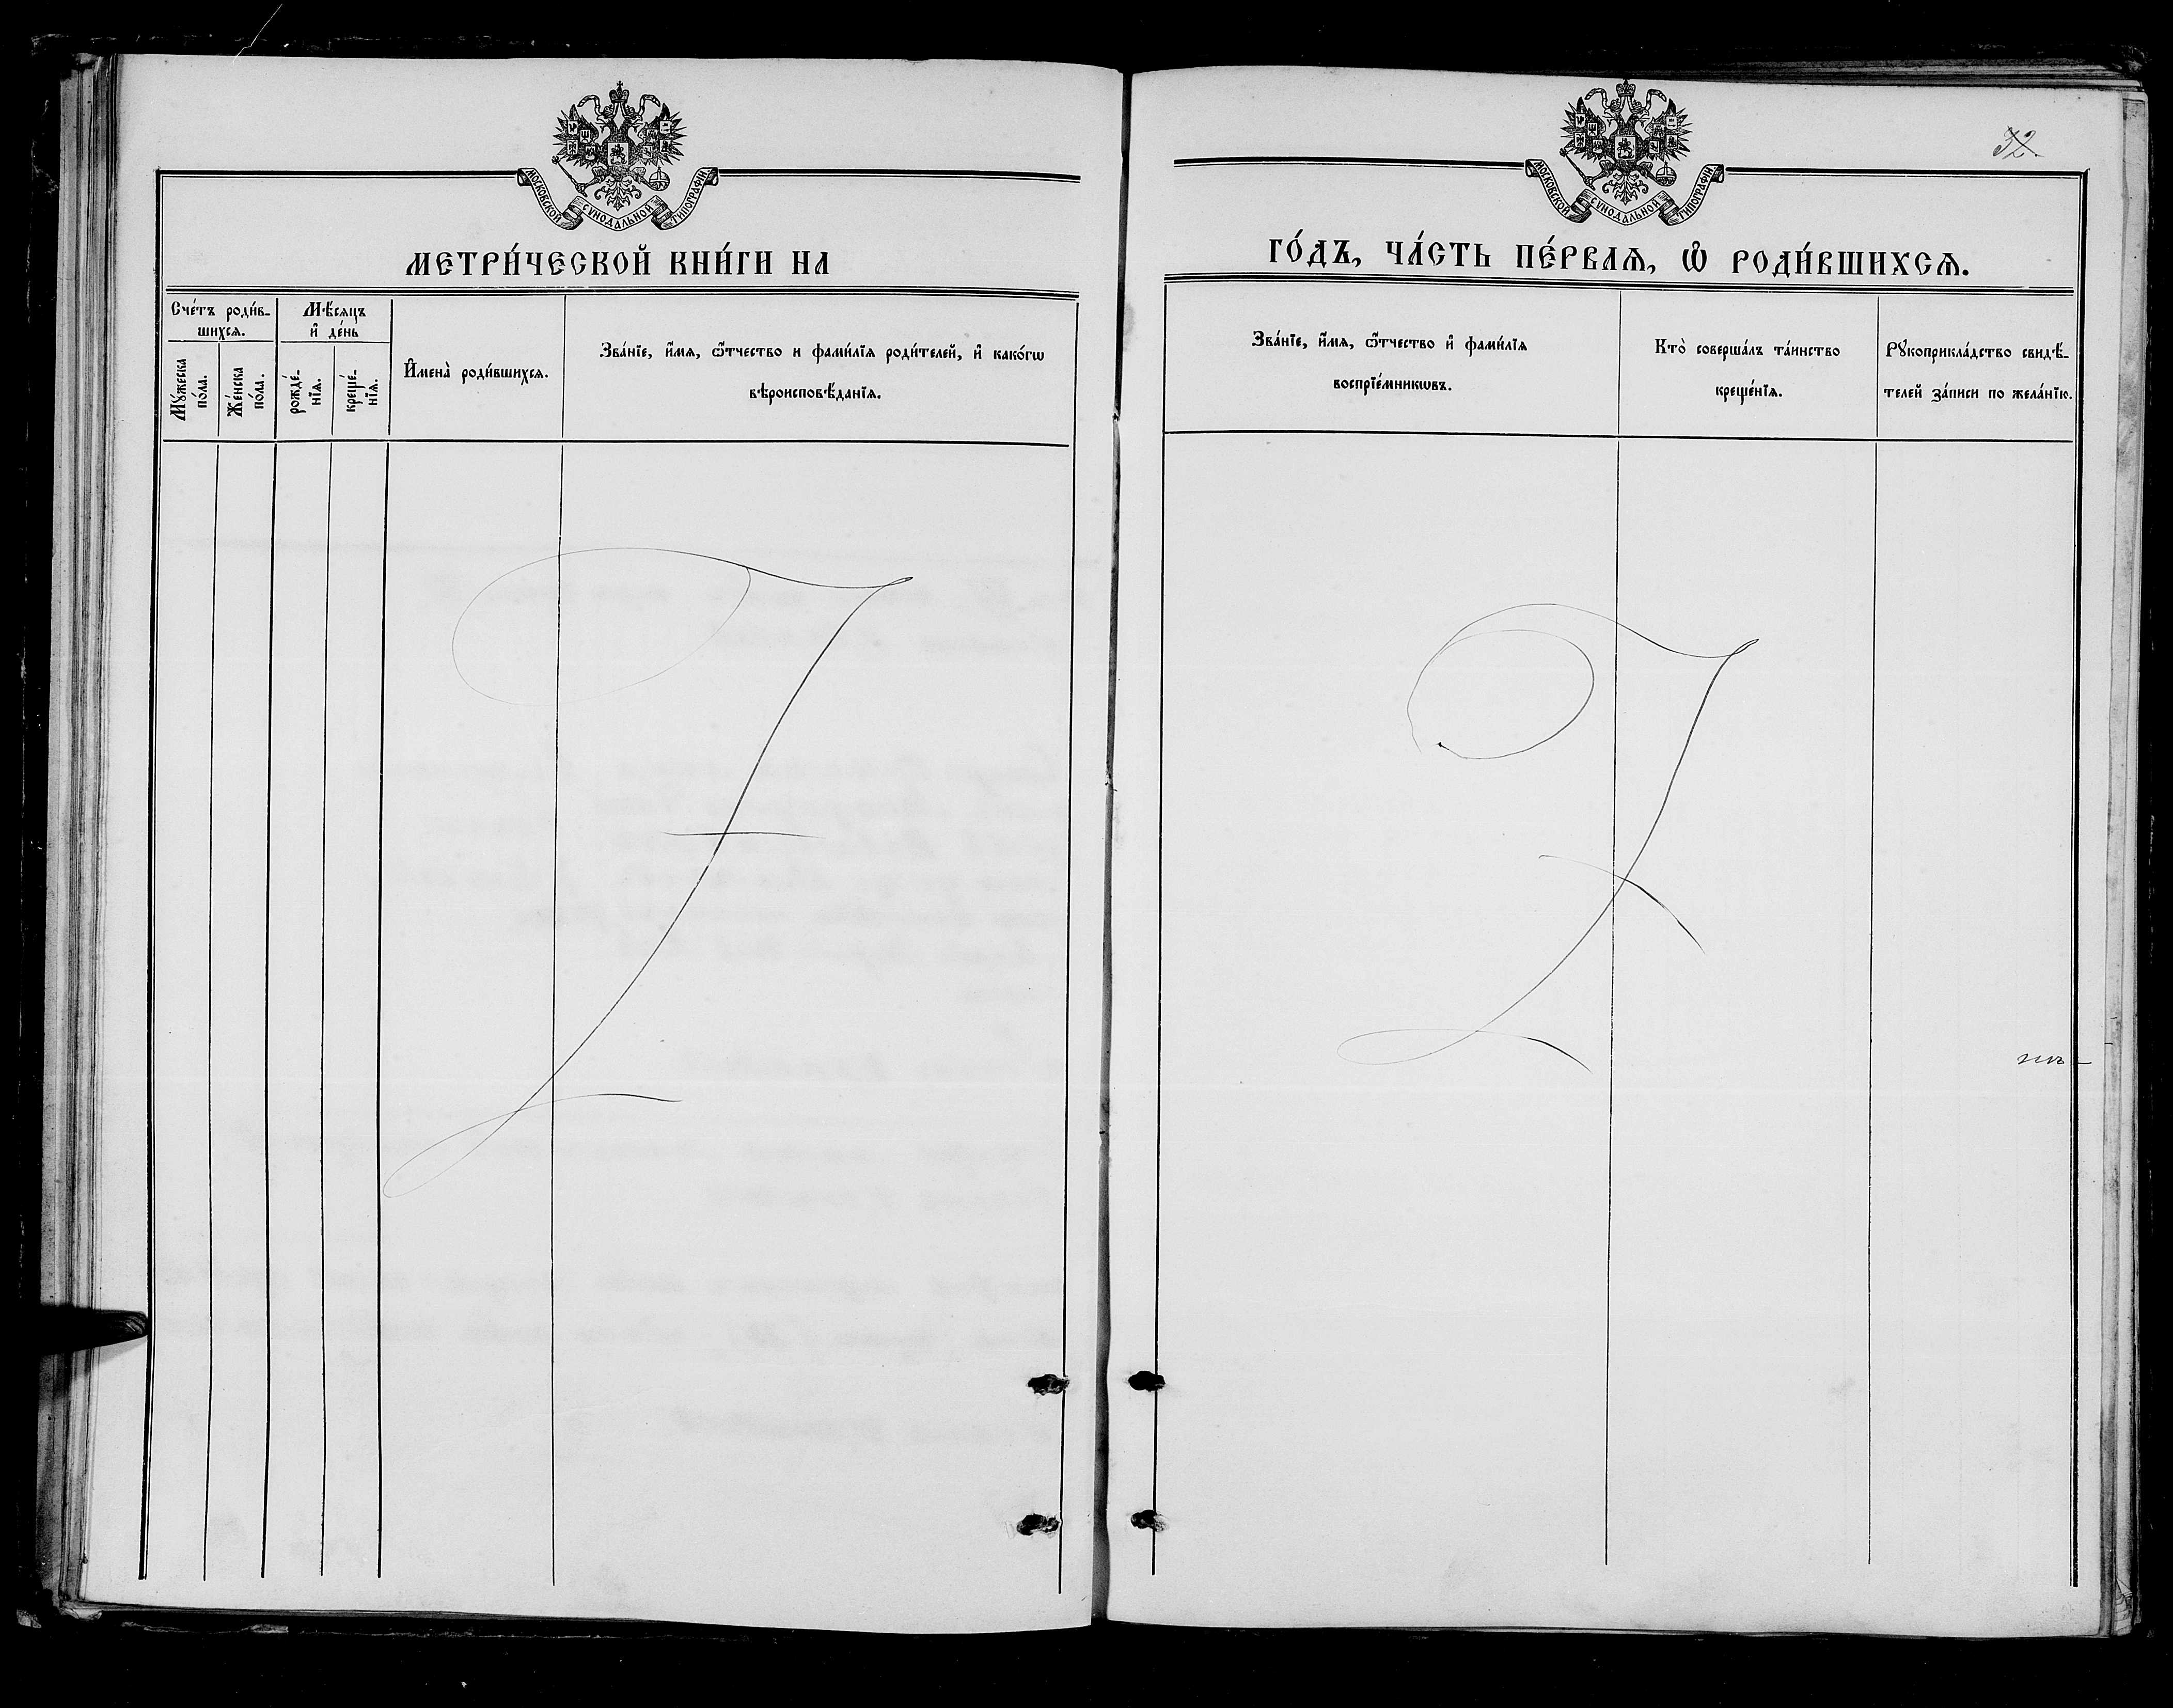 МОСКОВСКОЙ СѴНОДАЛЬНОЙ ТИПОГРАФІИ
МЕТРИ́ЧЕСКОЙ КНИ́ГИ НА
Сче́тъ роди́в-
шихсѧ.
Мѣ́сѧцъ
и҆ де́нь
И҆мена̀ роди́вшихсѧ.
Зва́нїе, и҆́мѧ, ѻ҆́тчество и фами́лїѧ роди́телей, и҆ како́гѡ
вѣроисповѣ́данїѧ.
Мꙋ́жеска
по́ла.
Же́нска
по́ла.
рожде́-
нїѧ.
креще́-
нїѧ.
32
МОСКОВСКОЙ СѴНОДАЛЬНОЙ ТИПОГРАФІИ
ГО́ДЪ, ЧА́СТЬ ПЕ́РВАѦ, Ѡ҆ РОДИ́ВШИХСѦ.
Зва́нїе, и҆́мѧ, ѻ҆́тчество и҆ фами́лїѧ
воспрїе́мникѡвъ.
Кто̀ соверша́лъ та́инство
креще́нїѧ.
Рꙋкоприкла́дство свидѣ́-
телей за́писи по жела́нїю.